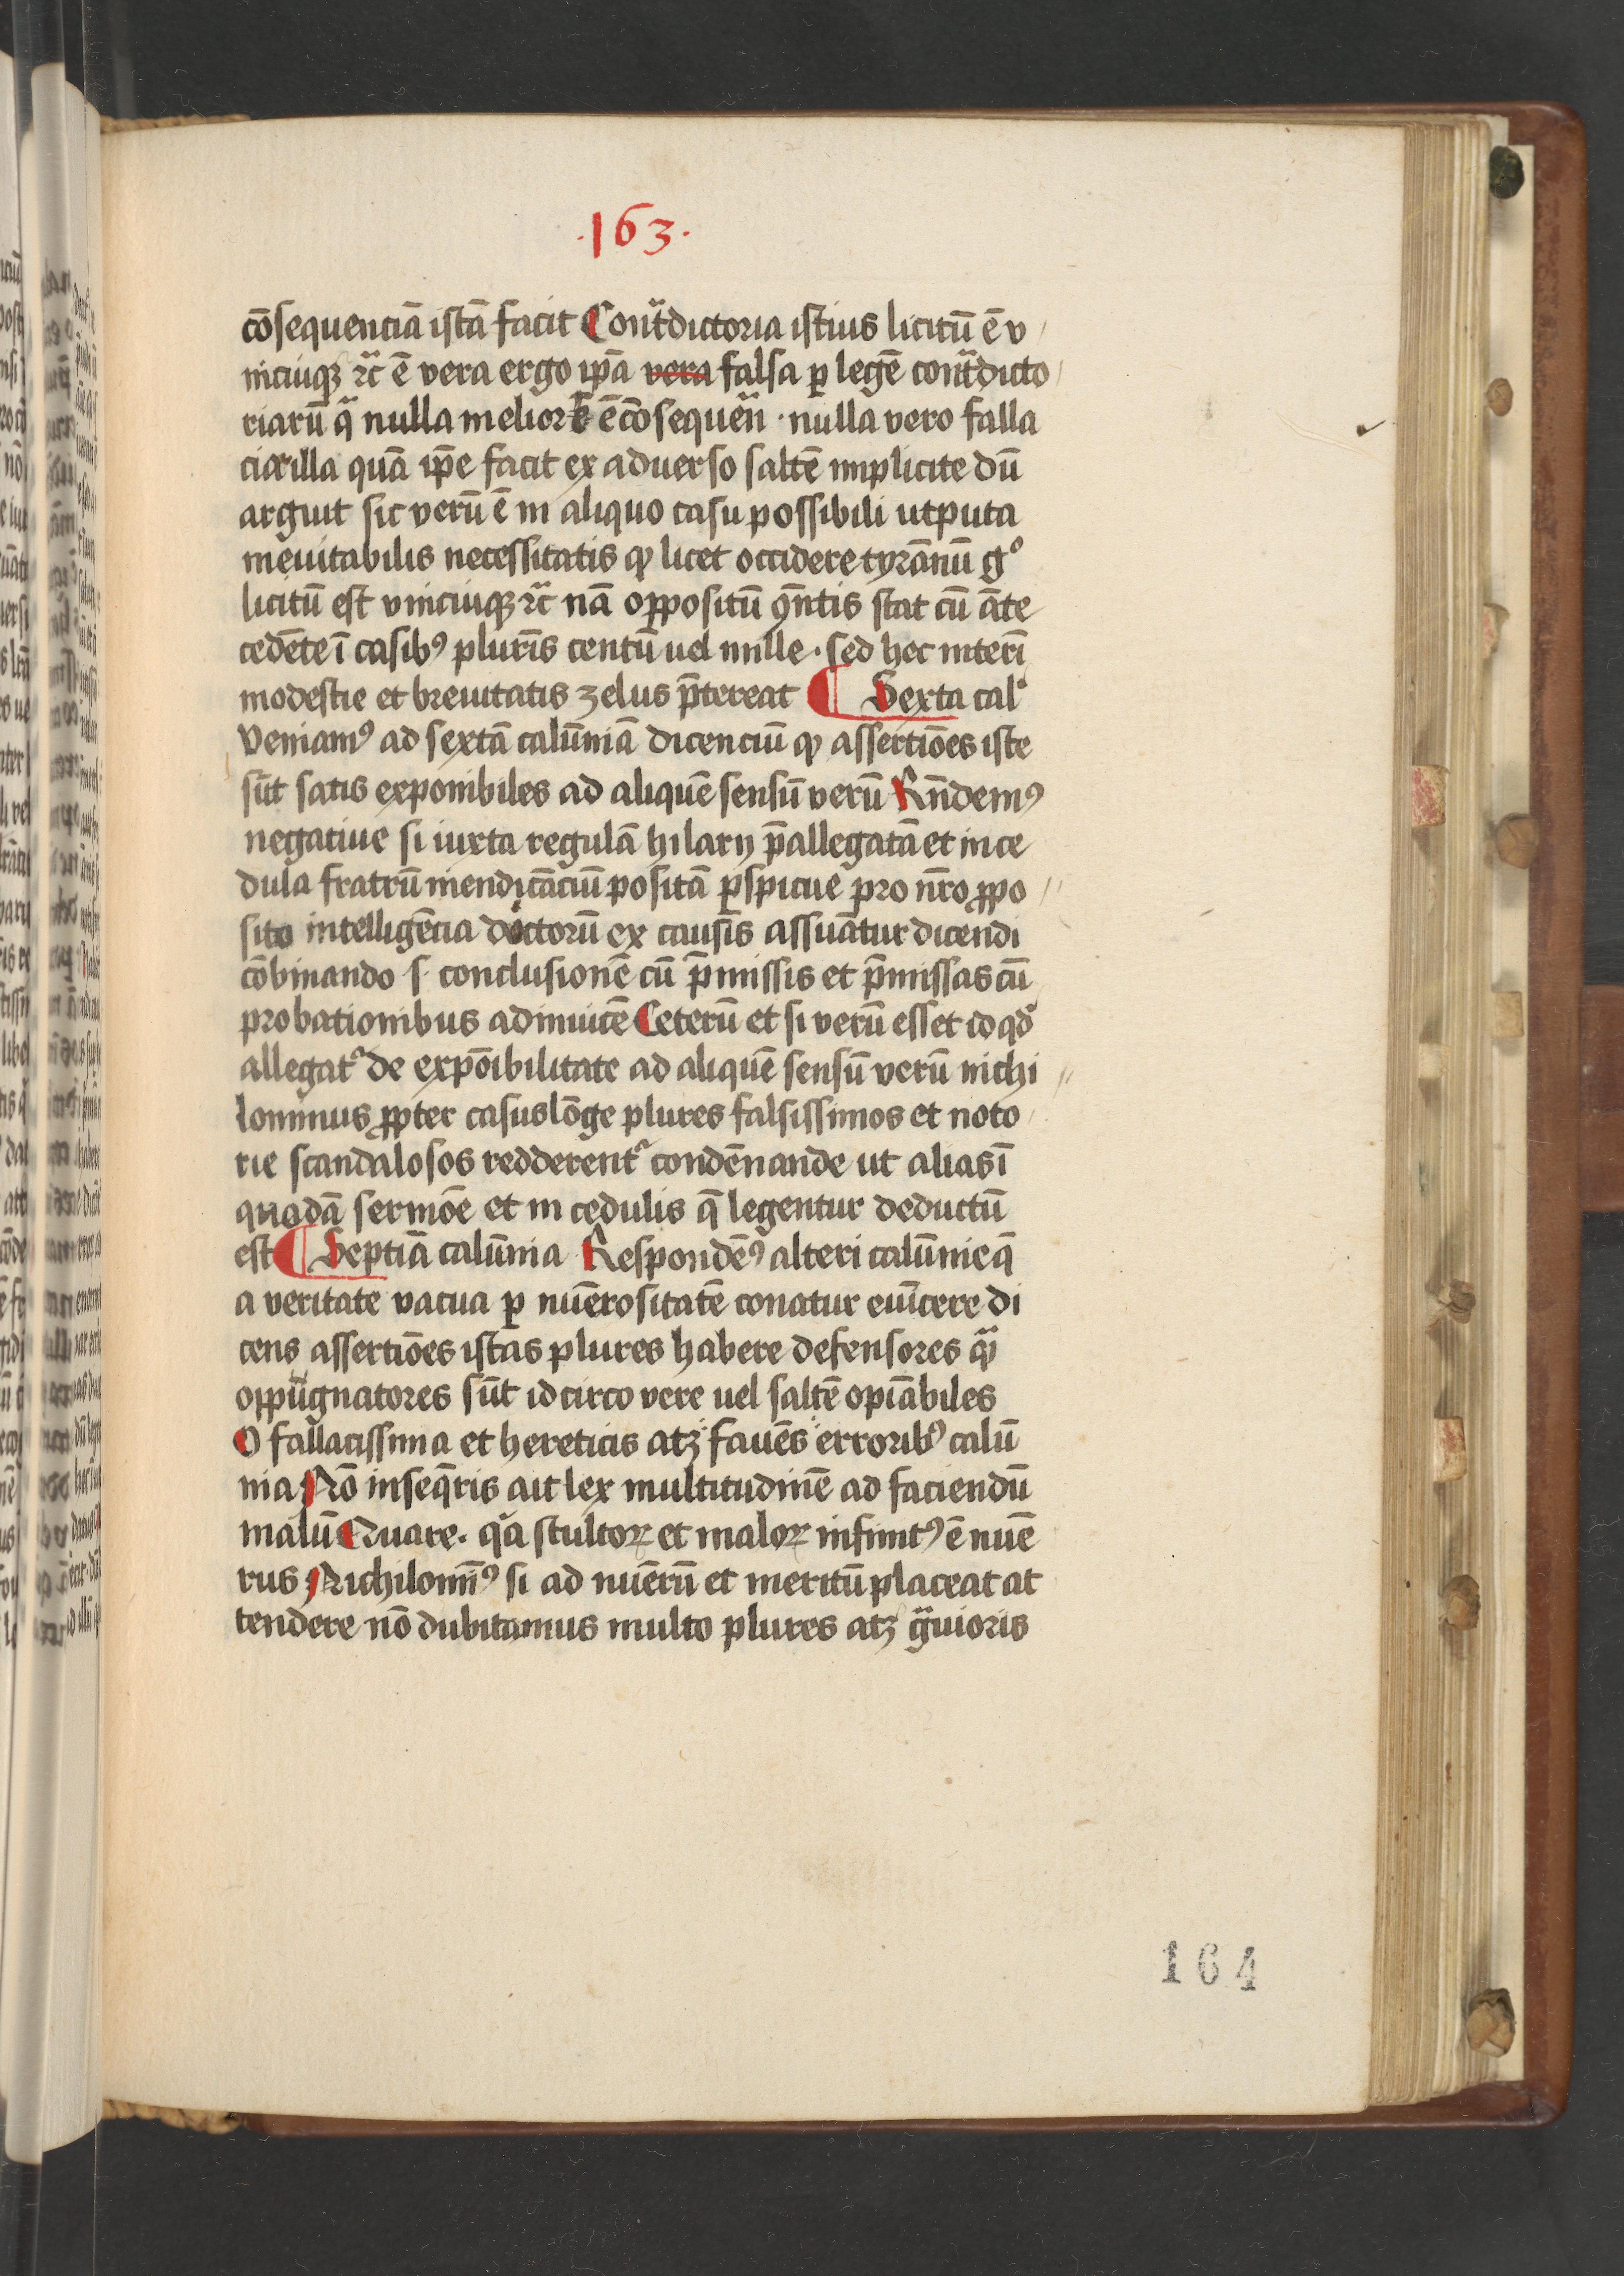 ·163·
cōsequenciā istā facit Contᵃdictoria istius licitū ē v
nicuiqꝫ ⁊c̄ ē vera ergo ip̄a vera falsa ꝑ legē contᵃdicto
riarū qᵃ nulla melior ē cōsequen̄ · nulla vero falla
cior illa quā ip̄e facit ex aduerso saltē implicite dū
arguit sic verū ē in aliquo casu possibili utputa
ineuitabilis necessitatis ꝙ licet occidere tyrānū gͦ
licitū est vnicuiqꝫ ⁊c̄ nā oppositū ꝯn̄tis stat cū āte
cedēte ī casibꝰ pluris̄ centū uel mille · sed hec interī
modestie et breuitatis zelus p̄tereat ¶ Sexta cal᷒
Veniamꝰ ad sextā calūniā dicenciū ꝙ assertiōes iste
sūt satis exponibiles ad aliquē sensū verū Rn̄demꝰ
negatiue si iuxta regulā hilarij p̄allegatā et in ce
dula fratrū mendicāciū positā ꝑspicue pro nr̄o ꝓpo
sito intelligēcia doctorū ex causis̄ assūatur dicendi
cōbinando s· conclusionē cū p̄missis et p̄missas cū
probationibus adinuicē Ceterū et si verū esset id qd̓
allegatᷣ de expōibilitate ad aliquē sensū verū nichi
lominus ꝓpter casus lōge plures falsissimos et noto
rie scandalosos redderentᷣ condēnande ut alias ī
quodā sermōe et in cedulis q̄ legentur deductū
est ¶ Septiā calūnia Respondēꝰ alteri calūnie q̄
a veritate vacua ꝑ nūerositatē conatur euīcere di
cens assertiōes istas plures habere defensores qᵃꝫ
oppūgnatores sūt idcirco vere uel saltē opīabiles
O fallacissima et hereticis atqꝫ fauēs erroribꝰ calū
nia Nō inseq̄ris ait lex multitudinē ad faciendū
malū Quare · qᵃ stultoꝝ et maloꝝ infinitꝰ ē nūe
rus Nichilomīꝰ si ad nūerū et meritū placeat at
tendere nō dubitamus multo plures atqꝫ gᵃuioris
164